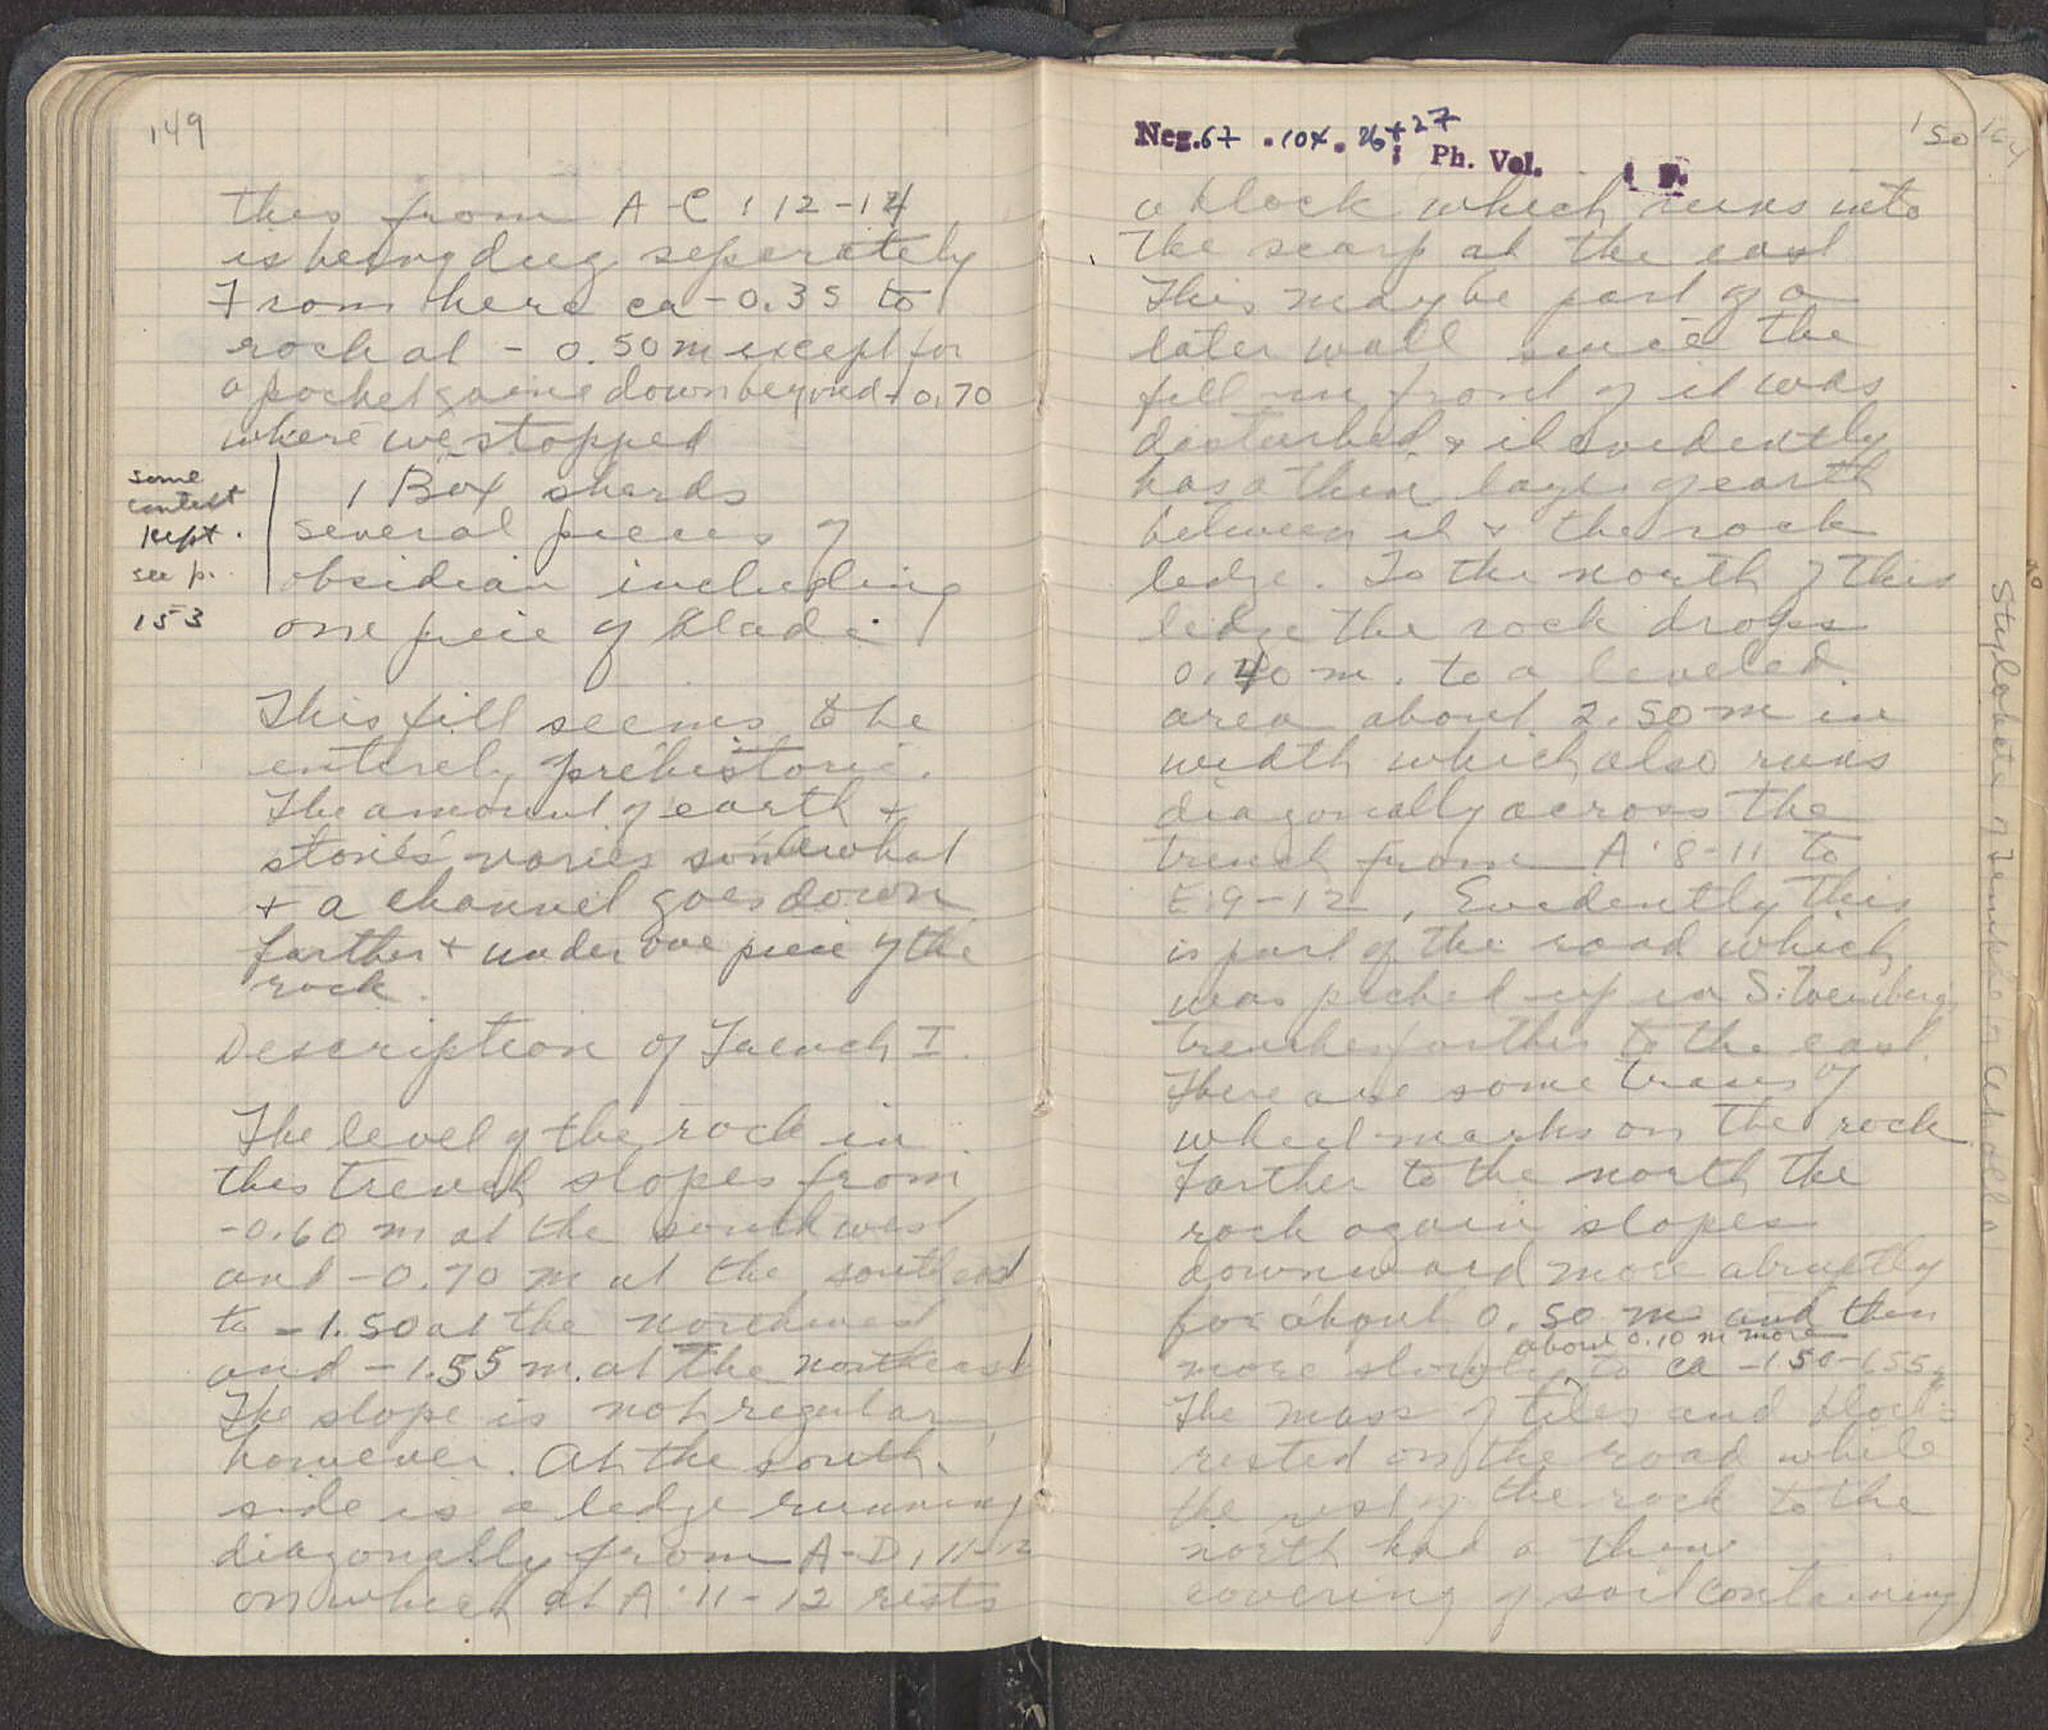 149
this from A-C : 12-14
is being dug seperately
From here ca -0.35 to
rock at - 0.50 m except for
a pocket going down beyond - 0.70
where we stopped
some
context
kept.
see p.
153
1 Box sherds
several pieces of
obsidian including
one piece of blade
This fill seems to be
entirely prehistoric.
The amount of earth +
stones varies somewhat
+ a channel goes down
farther + under one piece of the
rock.
Description of Trench I.
The level of the rock in
this trench slopes from
-0.60 m at the southwest
and -0.70 m at the southeast
to -1.50 at the northwest
and -1.55 m. at the northeast
The slope is not regular,
however. At the south
side is a ledge running
diagonally from A-D, 11-12
on which at A:11-12 rests
Neg. 67 . 104 . 26+27
; Ph. Vol.
150
a block which runs into
the scarp at the east
This maybe part of a
later wall since the
fill in front of it was
disturbed & it evidently
has a thin layer of earth
between it & the rock
ledge. To the north of this
ledge the rock drops
0.40 m. to a leveled
area about 2.50 m in
width which also runs
diagonally across the
trench from A:8-11 to
E:9-12. Evidently this
is part of the road which
was picked up in S.
trenches farther to the east.
There are some traces of
wheel marks on the rock
Farther to the north the
rock again slopes
downward more abruptly
for about 0.50 m and then
about 0.10 m more
more slowly to ca -1.50-1.55
The mass of tiles and blocks
rested on the road while
the rest of the rock to the
north had a thin
covering of soil containing
Stylobate of Temple